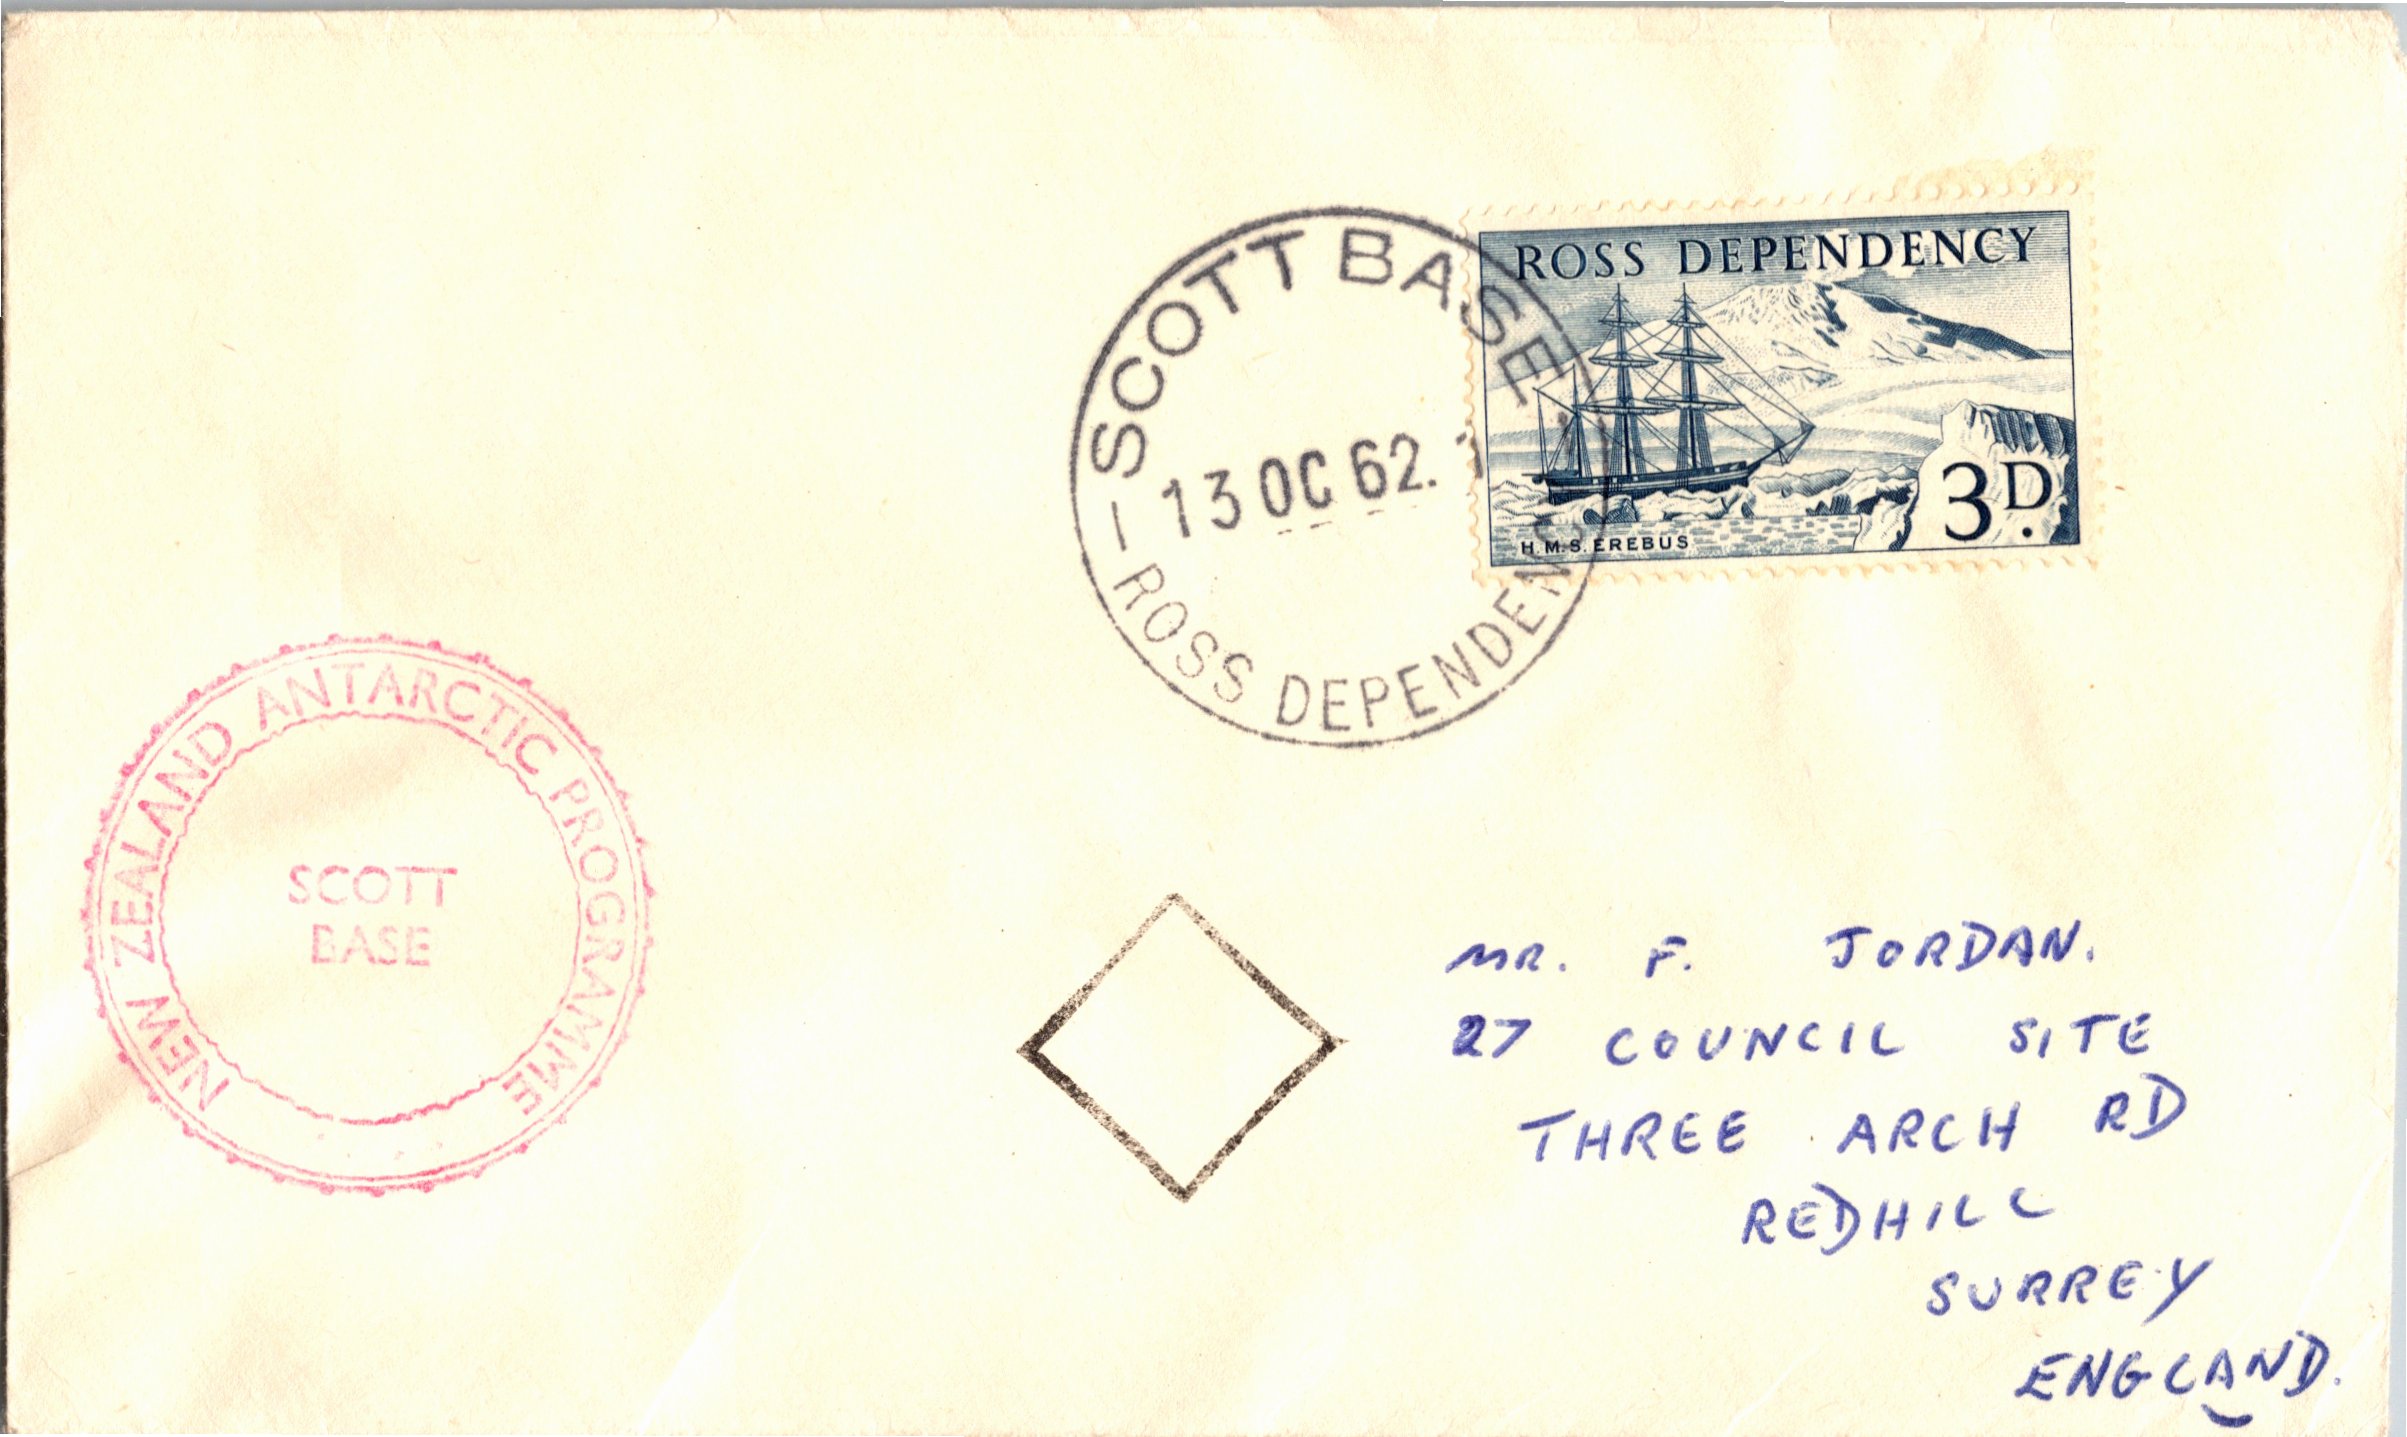 SCOTT BASE
13 OC 62.
ROSS DEPENDEN
ROSS DEPENDENCY
3D.
H.M.S. EREBUS
NEW ZEALAND ANTARCTIC PROGRAMME
SCOTT
BASE
MR. F. JORDAN.
27 COUNCIL SITE
THREE ARCH RD
REDHILL
SURREY
ENGLAND.